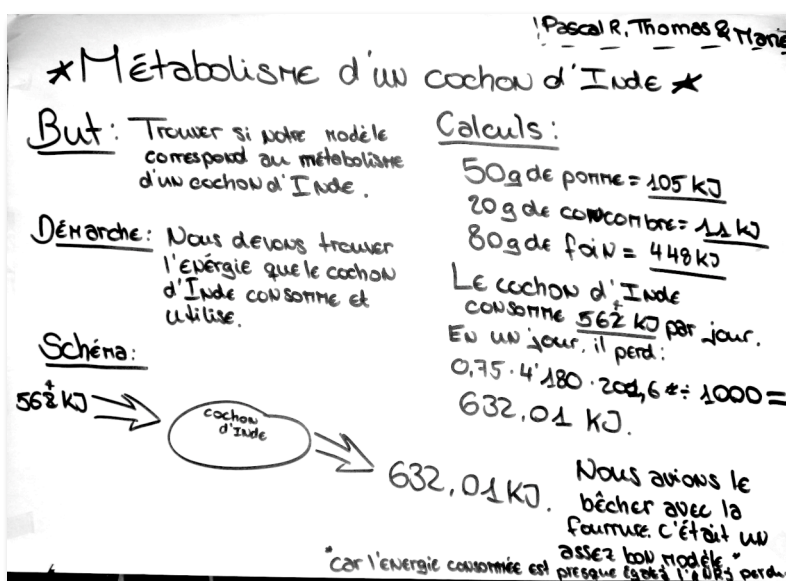 ! Pascal R, Thomas & Marie
*Métabolisme d'un cochon d'Inde*
But: Trouver si notre modèle
correspond au métabolisme
d'un cochon d'Inde.
Démarche: Nous devons trouver
l'énergie que le cochon
d'Inde consomme et
utilise.
Schéma:
562 KJ
cochon
d'Inde
632,01 KJ.
Calculs:
50g de pomme = 105 kJ
20g de concombre = 11 kJ
80g de foin = 448 kJ
Le cochon d'Inde
consomme 562 kJ par jour.
En un jour, il perd:
0,75 · 4'180 · 201,6 ÷ 1000 =
632,01 KJ.
Nous avions le
bêcher avec la
fourrure. C'était un
assez bon modèle.*
*car l'énergie consommée est presque égale à l'énergie perdue